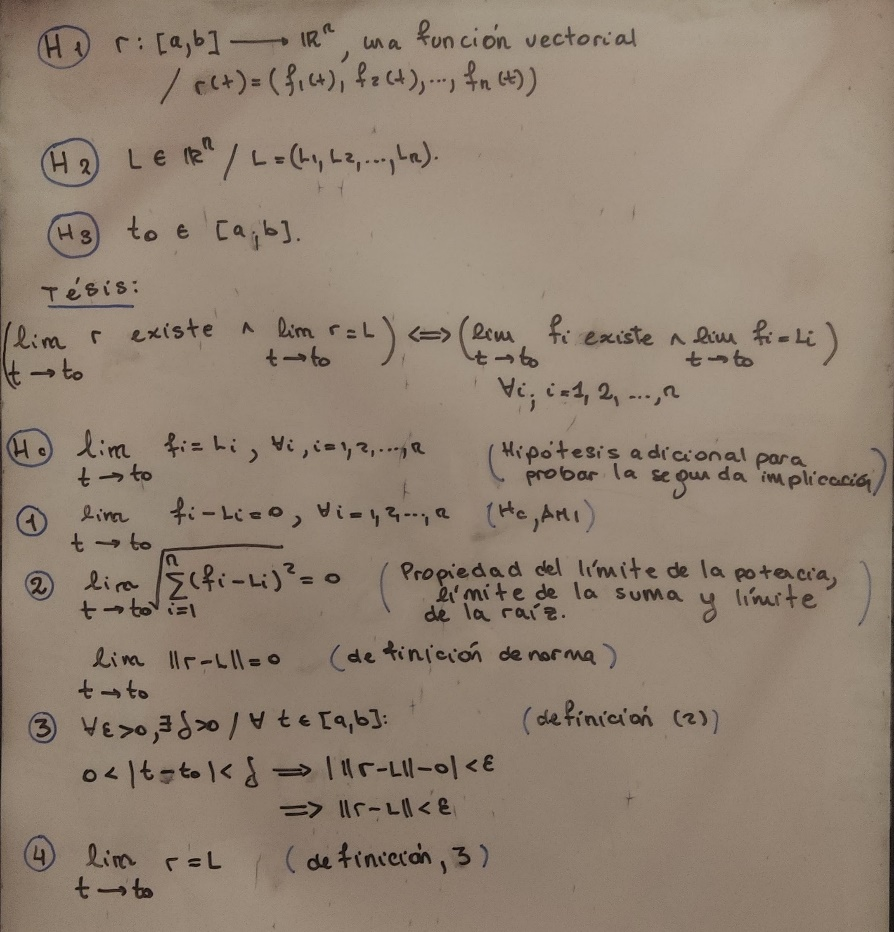 H1 r: [a,b] → ℝⁿ, una función vectorial
/ r(t) = (f₁(t), f₂(t), ..., fₙ(t))
H2 L ∈ ℝⁿ / L = (L₁, L₂, ..., Lₙ).
H3 t₀ ∈ [a,b].
Tésis:
(lim r existe ∧ lim r = L) ⟺ (lim fi existe ∧ lim fi = Li)
t → t₀ t → t₀ t → t₀ t → t₀
∀i; i = 1, 2, ..., n
H₀ lim fi = Li, ∀i, i = 1, 2, ..., n (Hipótesis adicional para
t → t₀ probar la segunda implicación)
1 lim fi - Li = 0, ∀i = 1, 2, ..., n (H₀, AM1)
t → t₀
2 lim √∑(fi - Li)² = 0 (Propiedad del límite de la potencia,
t → t₀ i=1 n límite de la suma y límite
de la raíz.)
lim ||r - L|| = 0 (definición de norma)
t → t₀
3 ∀ε > 0, ∃δ > 0 / ∀ t ∈ [a,b]: (definición (2))
0 < |t - t₀| < δ ⟹ | ||r - L|| - 0| < ε
⟹ ||r - L|| < ε
4 lim r = L (definición, 3)
t → t₀